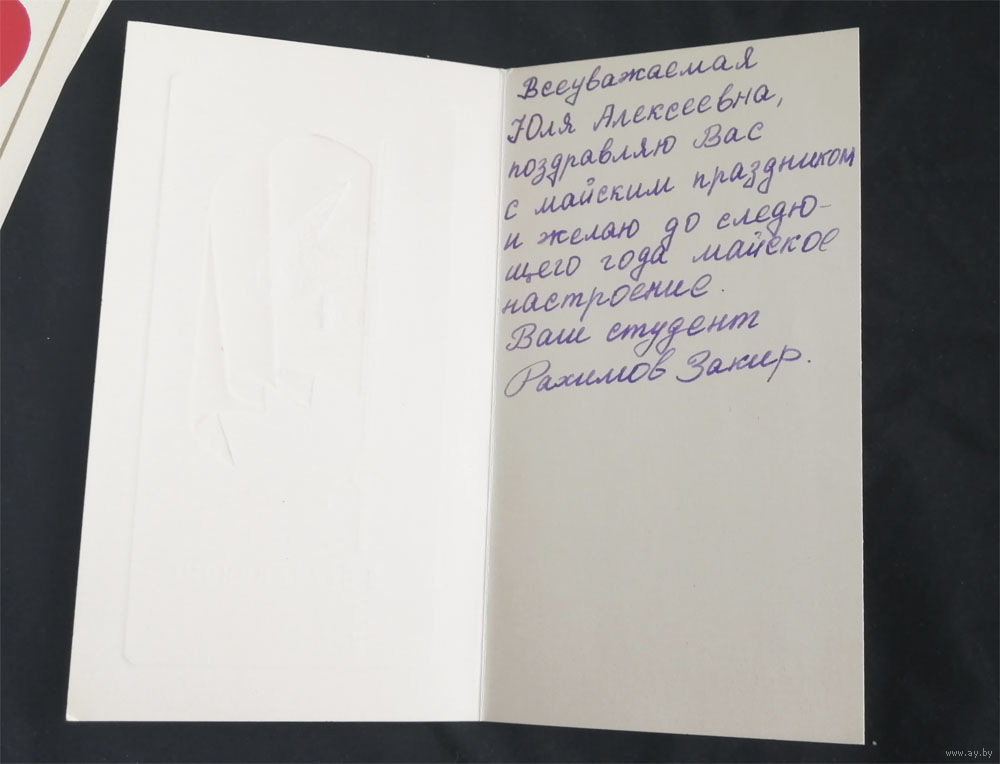 Всеуважаемая
Юля Алексеевна,
поздравляю Вас
с майским праздником
и желаю до следю-
щего года майское
настроение.
Ваш студент
Рахимов Закир.
www.ay.by